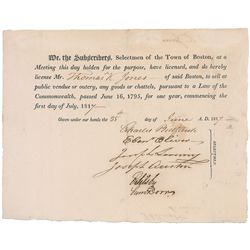 We, the Subscribers, Selectmen of the Town of Boston, at a
Meeting this day holden for the purpose, have licensed, and do hereby
license Mr. Thomas K. Jones of said Boston, to sell at
public vendue or outcry, any goods or chattels, pursuant to a Law of the
Commonwealth, passed June 16, 1795, for one year, commencing the
first day of July, 181
Given under our hands the 25th day of June A. D. 181
Charles Bulfinch
Eben Oliver
Joseph Lovering
Joseph Austin
SELECTMEN